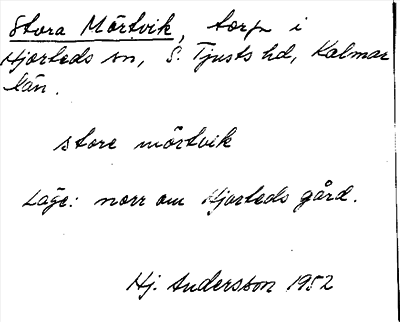 Stora Mörtvik, torp i
Hjorteds sn, S. Tjusts hd, Kalmar
län.
store mörtvik
Läge: norr om Hjorteds gård.
Hj. Andersson 1952